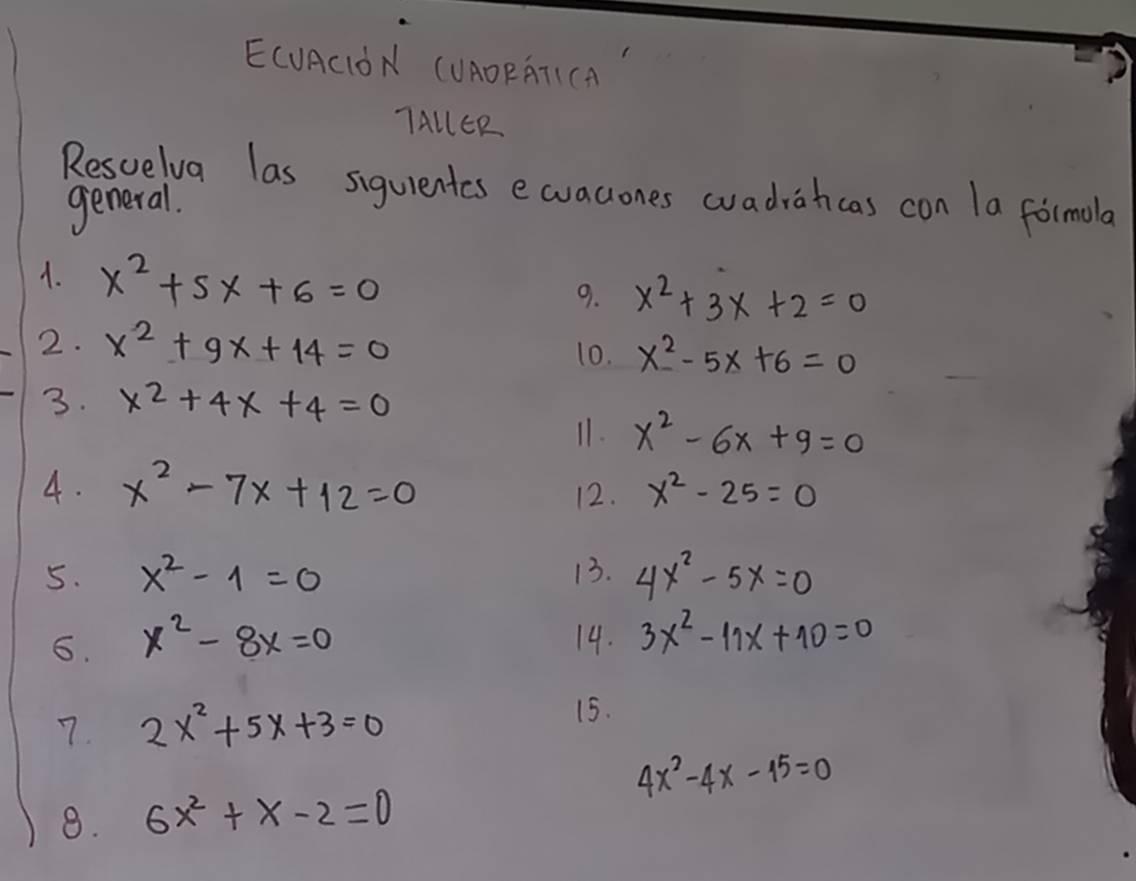 ECUACIÓN CUADRÁTICA
TALLER
Resuelva las siguientes ecuaciones cuadráticas con la fórmula
general.
1. x² + 5x + 6 = 0
2. x² + 9x + 14 = 0
3. x² + 4x + 4 = 0
4. x² - 7x + 12 = 0
5. x² - 1 = 0
6. x² - 8x = 0
7. 2x² + 5x + 3 = 0
8. 6x² + x - 2 = 0
9. x² + 3x + 2 = 0
10. x² - 5x + 6 = 0
11. x² - 6x + 9 = 0
12. x² - 25 = 0
13. 4x² - 5x = 0
14. 3x² - 11x + 10 = 0
15.
4x² - 4x - 15 = 0